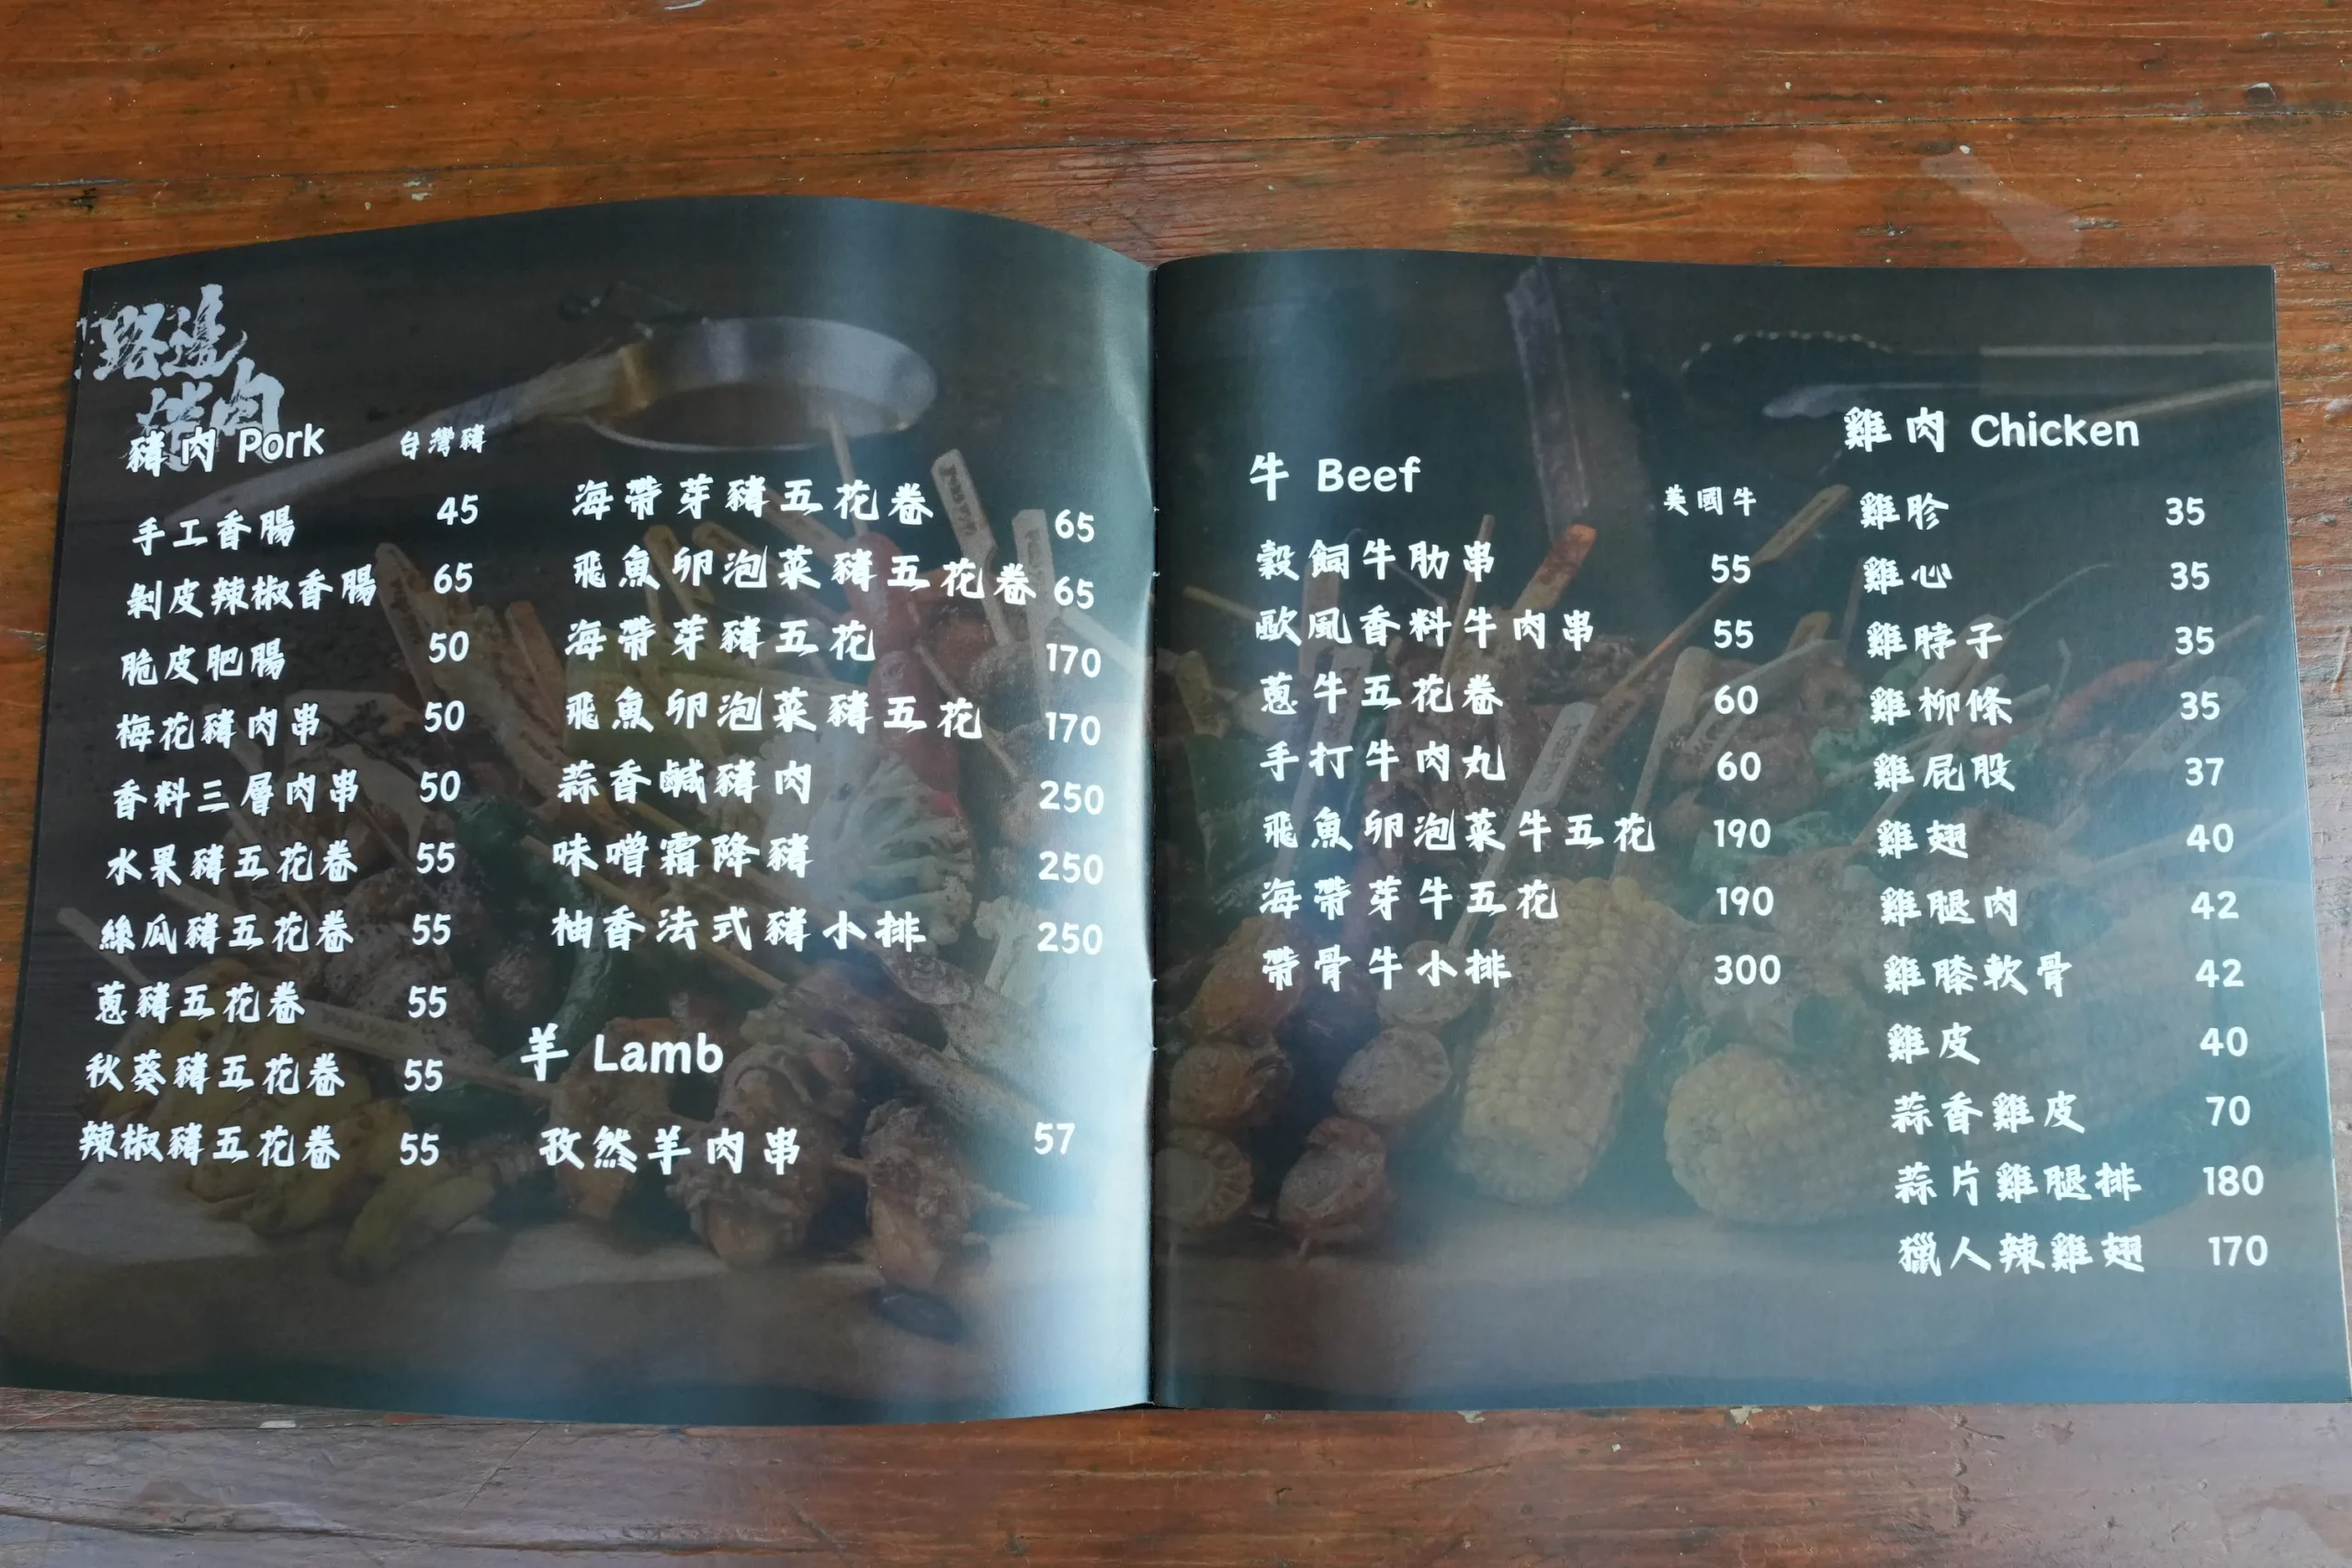 路邊
烤肉
豬肉 Pork 台灣豬
手工香腸 45
剝皮辣椒香腸 65
脆皮肥腸 50
梅花豬肉串 50
香料三層肉串 50
水果豬五花卷 55
絲瓜豬五花卷 55
蔥豬五花卷 55
秋葵豬五花卷 55
辣椒豬五花卷 55
海帶芽豬五花卷 65
飛魚卵泡菜豬五花卷 65
海帶芽豬五花 170
飛魚卵泡菜豬五花 170
蒜香鹹豬肉 250
味噌霜降豬 250
柚香法式豬小排 250
羊 Lamb
孜然羊肉串 57
牛 Beef 美國牛
穀飼牛肋串 55
歐風香料牛肉串 55
蔥牛五花卷 60
手打牛肉丸 60
飛魚卵泡菜牛五花 190
海帶芽牛五花 190
帶骨牛小排 300
雞肉 Chicken
雞胗 35
雞心 35
雞脖子 35
雞柳條 35
雞屁股 37
雞翅 40
雞腿肉 42
雞膝軟骨 42
雞皮 40
蒜香雞皮 70
蒜片雞腿排 180
獵人辣雞翅 170